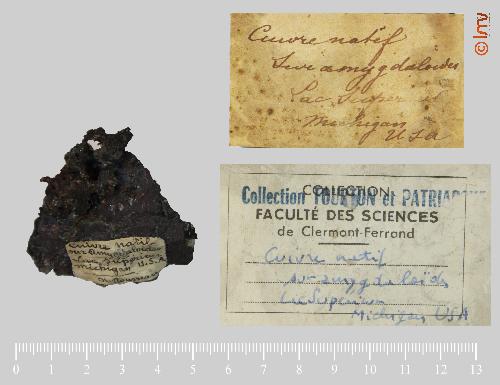 © lmv
Cuivre natif
Sur amygdaloïdes
Lac Supérieur
Michigan
USA
Collection FOURTON et PATRIARCHE
COLLECTION
FACULTÉ DES SCIENCES
de Clermont-Ferrand
Cuivre natif
sur amygdaloïdes
Lac Superieur
Michigan USA
Cuivre natif
sur amygdaloïdes
Lac Supérieur
Michigan U.S.A
0 1 2 3 4 5 6 7 8 9 10 11 12 13